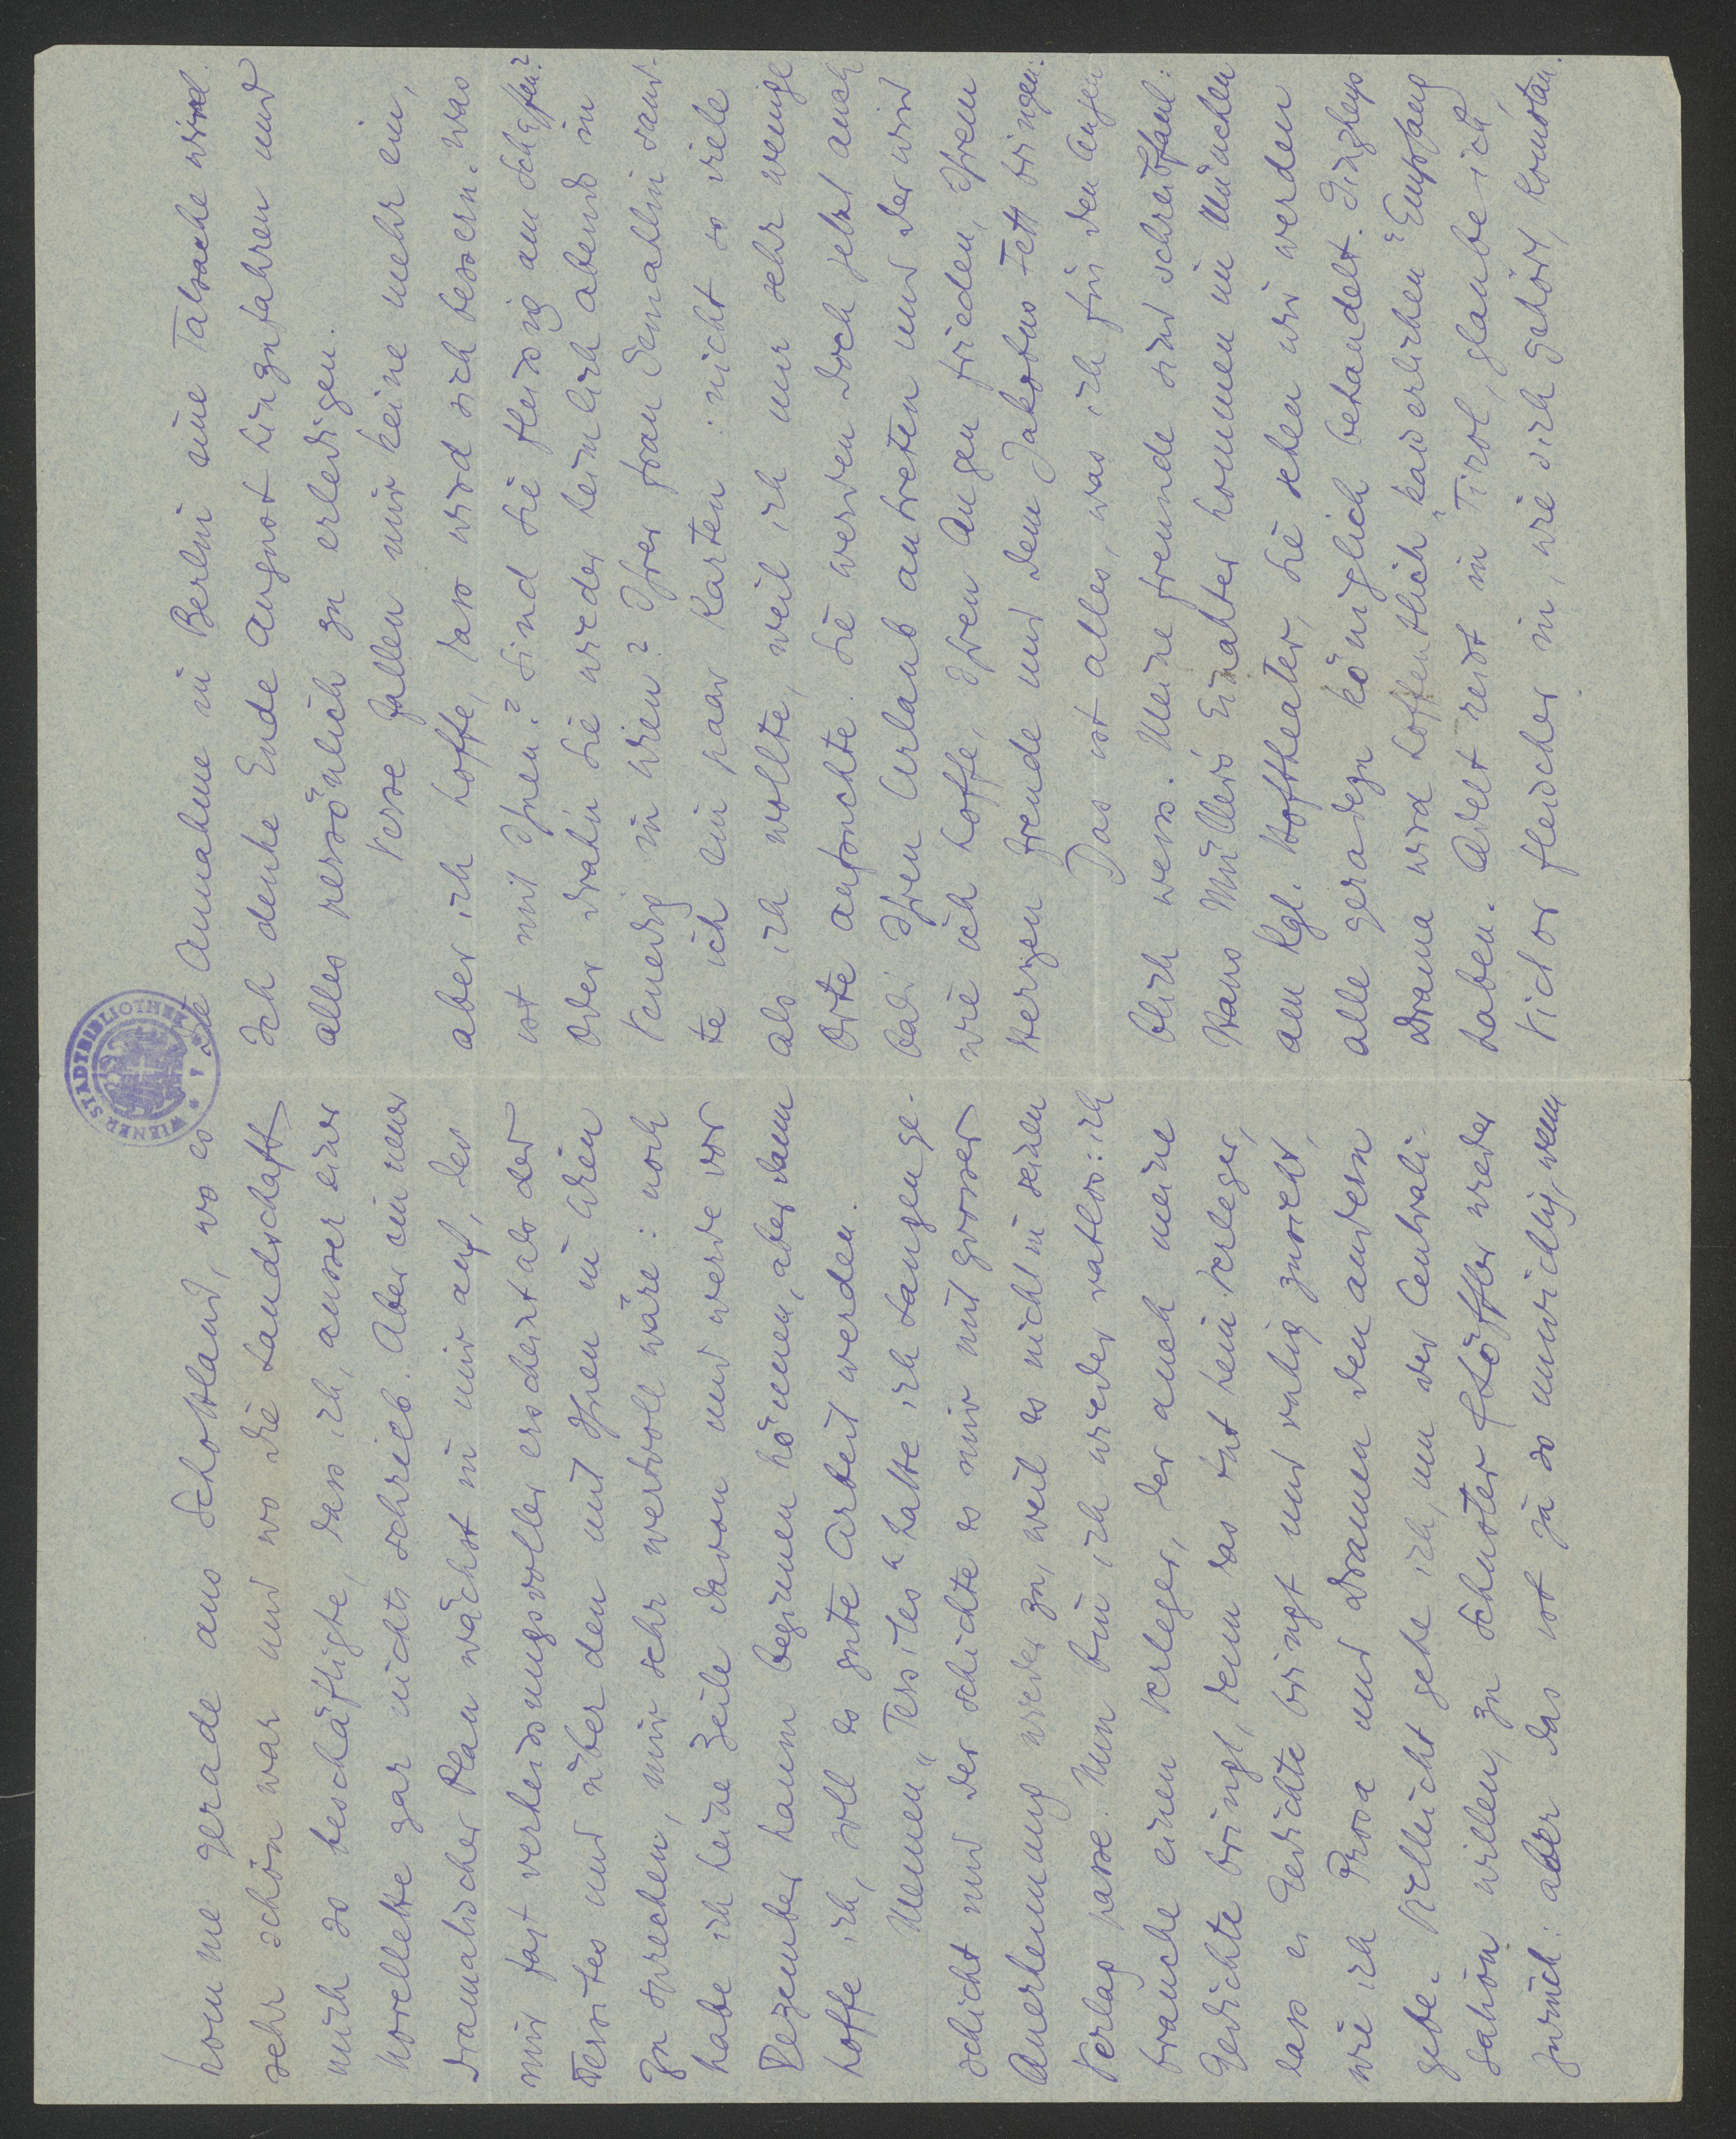 komme gerade aus Schottland, wo es
sehr schön war und wo die Landschaft
mich so beschäftigte, dass ich, ausser einer
Novellette gar nichts schrieb. Aber ein neuer
dramatischer Plan wächst in mir auf, der
mir fast verheissungsvoller erscheint als der
Tersites und über den mit Ihnen in Wien
zu sprechen, mir sehr wertvoll wäre: noch
habe ich keine Zeile davon und werde vor
Dezember kaum beginnen können, aber dann
hoffe ich, soll es gute Arbeit werden.
Meinen „Tersites“ hatte ich Langen ge-
schickt und der schickte es mir mit grosser
Anerkennung wieder zu, weil es nicht in seinen
Verlag passe. Nun bin ich wieder ratlos: ich
brauche einen Verleger, der auch meine
Gedichte bringt, denn das tut kein Verleger,
dass er Gedichte bringt und ruhig zusieht,
wie ich Prosa und Dramen den andern
gebe. Vielleicht gehe ich, um der Centrali-
sation willen, zu Schuster & Löffler wieder
zurück: aber das ist ja so unwichtig, wenn
die Annahme in Berlin eine Tatsache wird.
Ich denke Ende August hinzufahren und
alles persönlich zu erledigen.
Verse fallen mir keine mehr ein,
aber ich hoffe, dass wird sich bessern. Was
ist mit Ihnen? Sind Sie fleissig am Schaffen?
Oder drah'n Sie wieder heimlich abends in
Venedig in Wien? Ihrer Frau Gemahlin sand-
te ich ein paar Karten: nicht so viele
als ich wollte, weil ich nur sehr wenige
Orte aufsuchte. Sie werden doch jetzt auch
bald Ihren Urlaub antreten und der wird
wie ich hoffe, Ihren Augen Frieden, Ihrem
Herzen Freude und dem Jakobus Fett bringen.
Das ist alles, was ich für den Augen
blick weiss. Meine Freunde sind schreibfaul:
Hans Müllers Einakter kommen in München
am Kgl. Hoftheater, Sie sehen wir werden
alle geradezu königlich behandelt. Ginzkeys
Drama wird hoffentlich „kaiserlichen“ Empfang
haben. Adelt reist in Tirol, glaube ich,
Victor Fleischer in, wie sich gehört, Komotau.
WIENER STADTBIBLIOTHEK